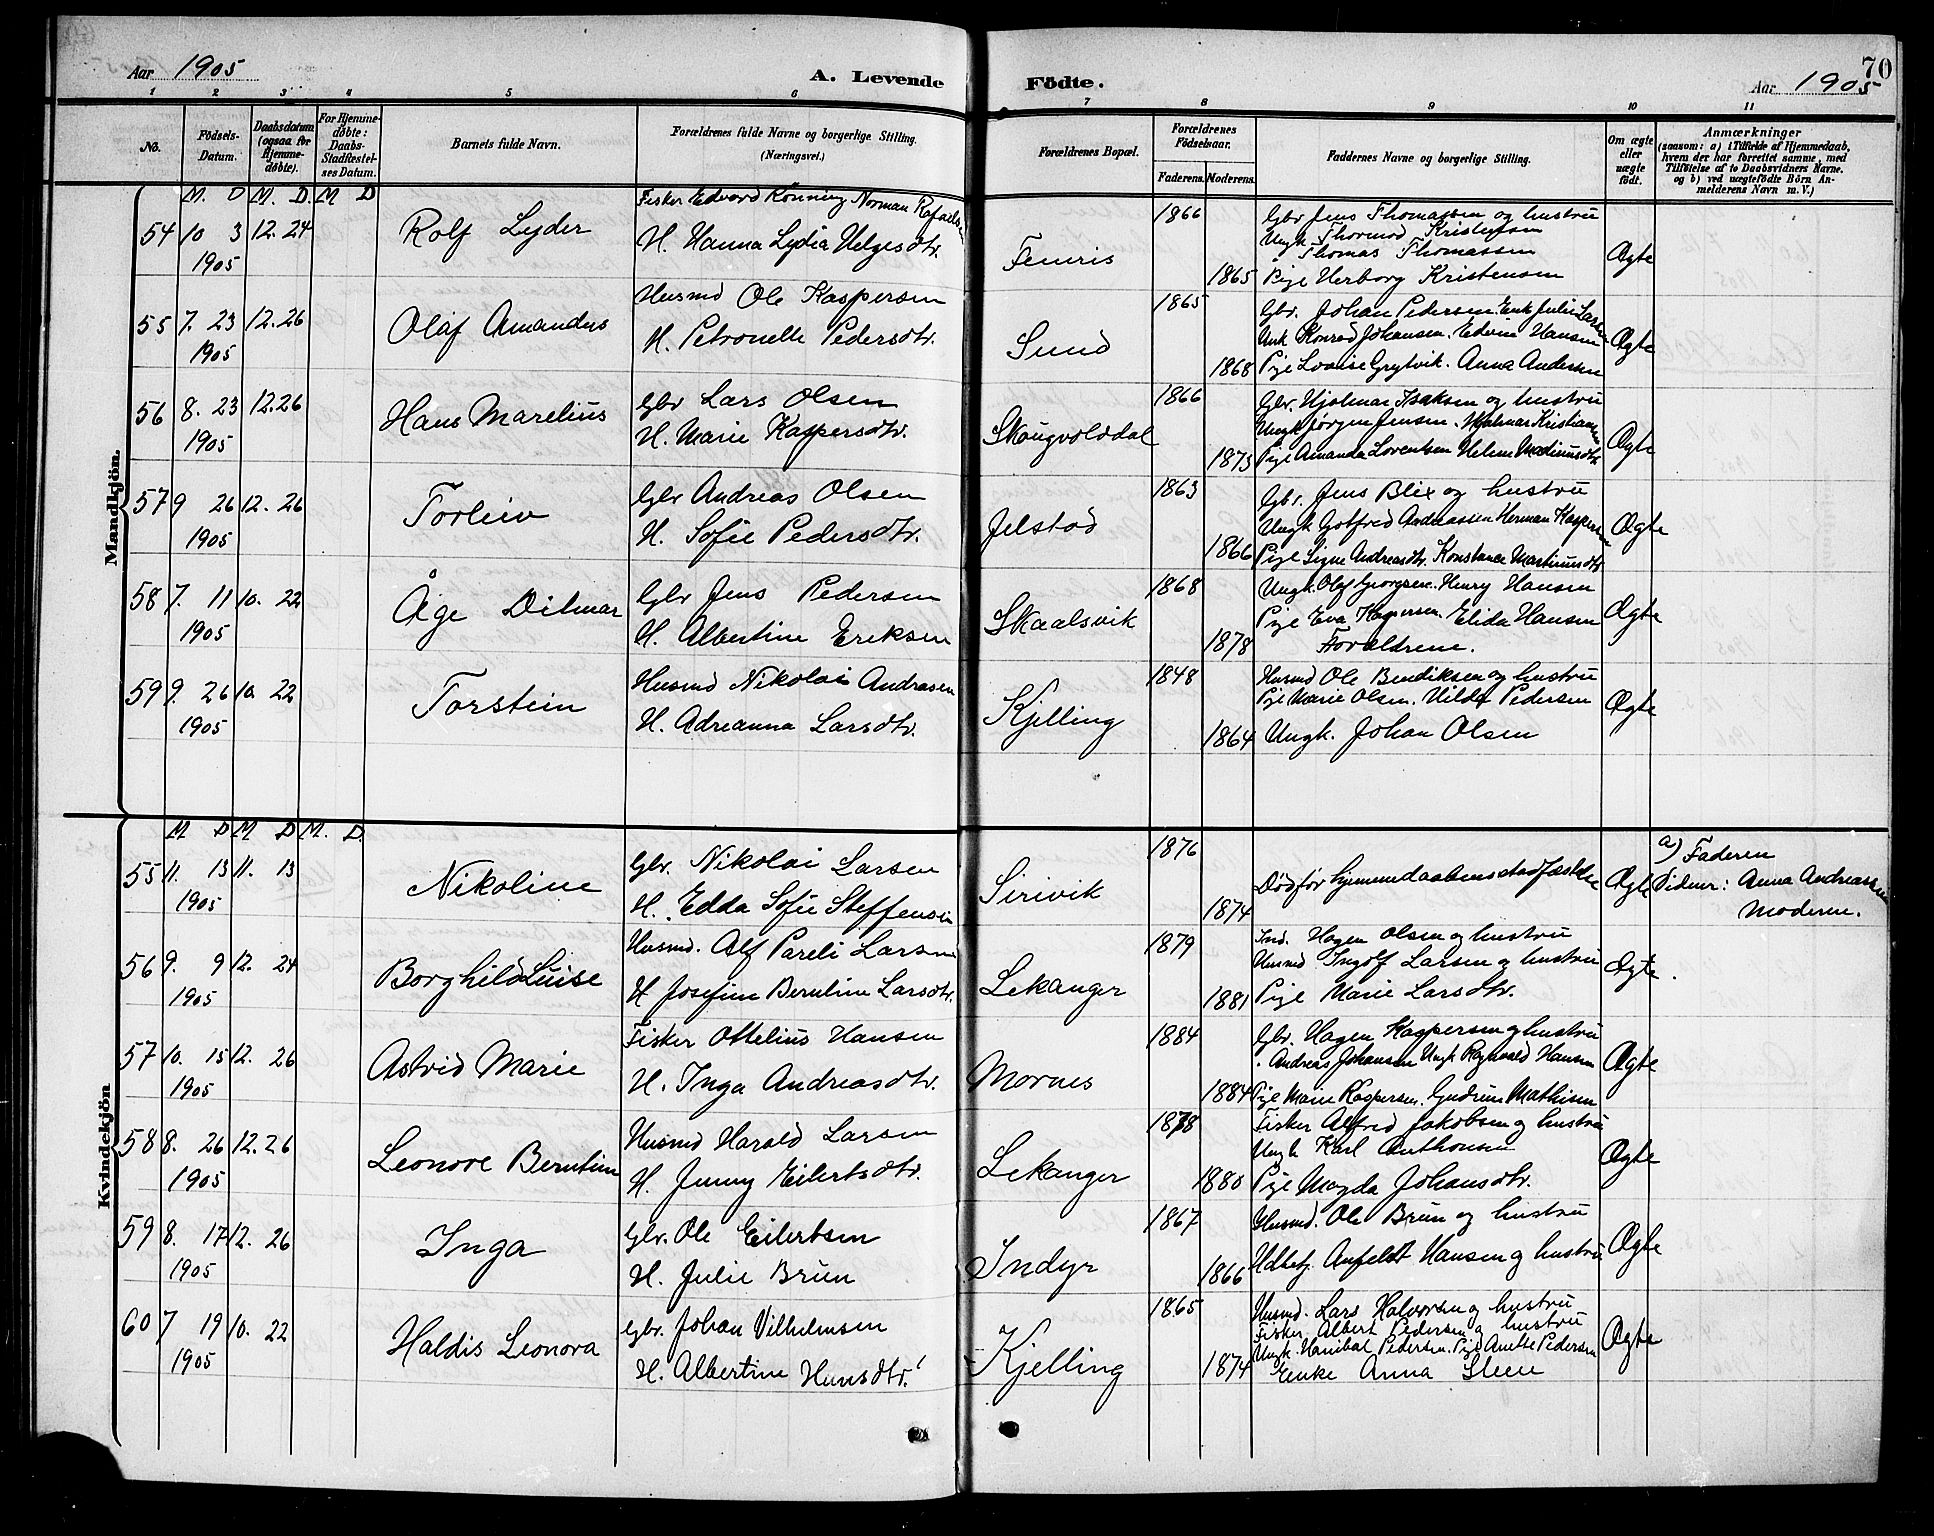 Aar 1905
A. Levende
Födte.
Aar 1905
70
1 2 3 4 5 6 7 8 9 10 11
No.
Födsels-Datum.
Daabsdatum (ogsaa for Hjemme-døbte).
For Hjemme-døbte: Daabs-Stadfæstel-ses Datum.
Barnets fulde Navn.
Forældrenes fulde Navne og borgerlige Stilling.
(Næringsvei.)
Forældrenes Bopæl.
Forældrenes Födselsaar.
Faderens. Moderens.
Faddernes Navne og borgerlige Stilling.
Om ægte eller uægte født.
Anmærkninger
(saasom: a) i Tilfælde af Hjemmedaab,
hvem der har forrettet samme, med
Tilføielse af to Daabsvidners Navne.
og b) ved uægtefødte Börn An-
melderens Navn m. V.)
Mandkjön.
M. D M. D. M D
54 10 3 12. 24 Rolf Lyder Fisker Edvard Rönning Norman Rafaelsen 1866 Gbr Jens Thomassen og hustru
Ungk Thormod Kristensen
1905 H. Hanna Lydia Helgesdtr. Femris Thomas Thomassen Ægte
1865 Pige Herborg Kristensen
55 7. 23 12. 26 Olaf Amandus Husmd Ole Kaspersen 1865 Gbr. Johan Pedersen. Enk Julie Larsen
1905 H. Petronelle Pedersdtr. Sund Unk Konrad Johansen. Edvin Hansen Ægte
1868 Pige Lovise Grytvik. Anna Andersen
56 8. 23 12. 26 Hans Marelius Gbr Lars Olsen 1866 Gbr. Hjalmar Isaksen og hustru
1905 H. Marie Kaspersdtr. Skougvolddal Ungk Jørgen Jensen. Hjalmar Kristiansen Ægte
1873 Pige Amanda Lorentsen Helene
57 9 26 12. 26 Torleiv Gbr Andreas Olsen 1863 Gbr. Jens Blix og hustru
1905 H. Sofie Pedersdtr. Jelstad Ungk Gotfred Andreassen Herman Kaspersen Ægte
1866 Pige Signe Andreasdtr. Konstance Martinusdtr
58 7. 11 10. 22 Åge Ditmar Gbr Jens Pedersen 1868 Ungk. Olaf Georgsen. Henry Hansen
1905 H. Albertine Eriksen Skaalsvik Pige Eva Kaspersen. Elida Hansen Ægte
1878 Forældrene.
59 9. 26 10. 22 Torstein Husmd Nikolai Andrasen 1848 Husmd Ole Bendiksen og hustru
1905 H. Adreanna Larsdtr. Kjelling Pige Marie Olsen. Hilda Pedersen Ægte
1864 Ungk. Johan Olsen
Kvindekjön
M D M D M. D.
55 11. 13 11. 13 Nikoline Gbr. Nikolai Larsen 1876 a) Faderen
1905 H. Edda Sofie Steffensen Sirivik Död för hjemmedaabens stadfæstelse Ægte Vidner: Anna Andreassen
1874 Moderen.
56 9. 9 12. 24 Borghild Luise Husmd. Alf Pareli Larsen 1879 Ind. Hagen Olsen og hustru
1905 H Josefine Berntine Larsdtr. Lekanger Husmd Ingolf Larsen og hustru Ægte.
1881 Pige Marie Larsdtr.
57 10. 15 12. 26 Astrid Marie Fisker Ottelius Hansen 1884 Gbr. Hagen Kaspersen og hustru
1905 H. Inga Andreasdtr. Mornes Andreas Johansen Ungk Ragnvald Hansen Ægte
1884 Pige Marie Kaspersen. Gudrun Mathisen
58 8. 26 12. 26 Leonore Berntine Husmd Harald Larsen 1878 Fisker Alfred Jakobsen og hustru
1905 H. Jenny Eilertsdtr. Lekanger Ungk Karl Anthonsen Ægte
1880 Pige Magda Johansdtr.
59 8. 17 12. 26 Inga Gbr. Ole Eilertsen 1867 Husmd. Ole Brun og hustru
1905 H. Julie Brun Indyr 1866 Anfeldt Hansen og hustru Ægte
60 7 19 10. 22 Haldis Leonora Gbr. Johan Vilhelmsen 1865 Husmd. Lars Halvorsen og hustru
Fisker Albert Pedersen og hustru
1905 H. Albertine Hansdtr. Kjelling Ungk. Hanibal Pedersen. Pige Anette Pedersen Ægte
1874 Enke Anna Steen